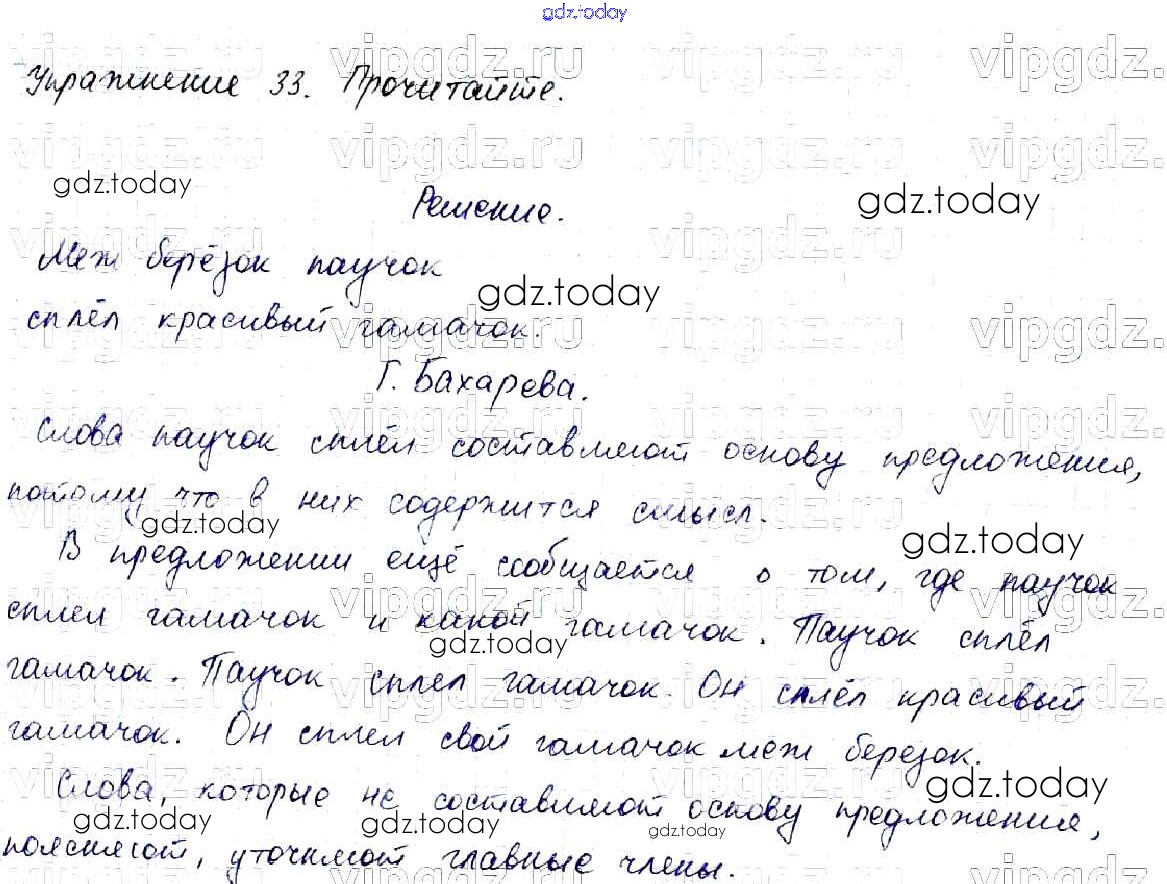 gdz.today
Упражнение 33. Прочитайте.
vipgdz.ru vipgdz.ru vipgdz.ru vipgdz.ru
gdz.today
gdz.today
Решение.
Меж берёзок паучок
gdz.today
сплёл красивый гамачок.
Г. Бахарева.
Слова паучок сплёл составляют основу предложения,
потому что в них содержится смысл.
gdz.today
gdz.today
В предложении ещё сообщается о том, где паучок
сплел гамачок и какой гамачок. Паучок сплёл
gdz.today
гамачок. Паучок сплел гамачок. Он сплёл красивый
гамачок. Он сплел свой гамачок меж березок.
gdz.today
Слова, которые не составляют основу предложения,
gdz.today gdz.today gdz.today gdz.today
поясняют, уточняют главные члены.